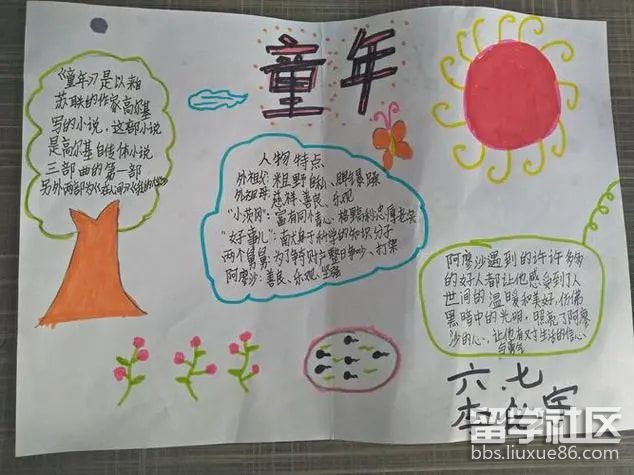 童年
《童年》是以前
苏联的作家高尔基
写的小说，这部小说
是高尔基自传体小说
三部曲的第一部
另外两部为《在人间》《我的大学》
人物特点
外祖父：粗野自私、脾气暴躁
外祖母：慈祥善良、乐观
“小茨冈”：富有同情心
“好事儿”：献身于科学的知识分子
两个舅舅：为了争财产整日争吵、打架
阿廖沙：善良、乐观、坚强
阿廖沙遇到的许许多多
的好人都让他感受到了人
世间的温暖和美好，仿佛
黑暗中的光明，照亮了阿廖
沙的心，让他有对生活的信心
与勇气
六、七
留学社区
bbs.liuxue86.com